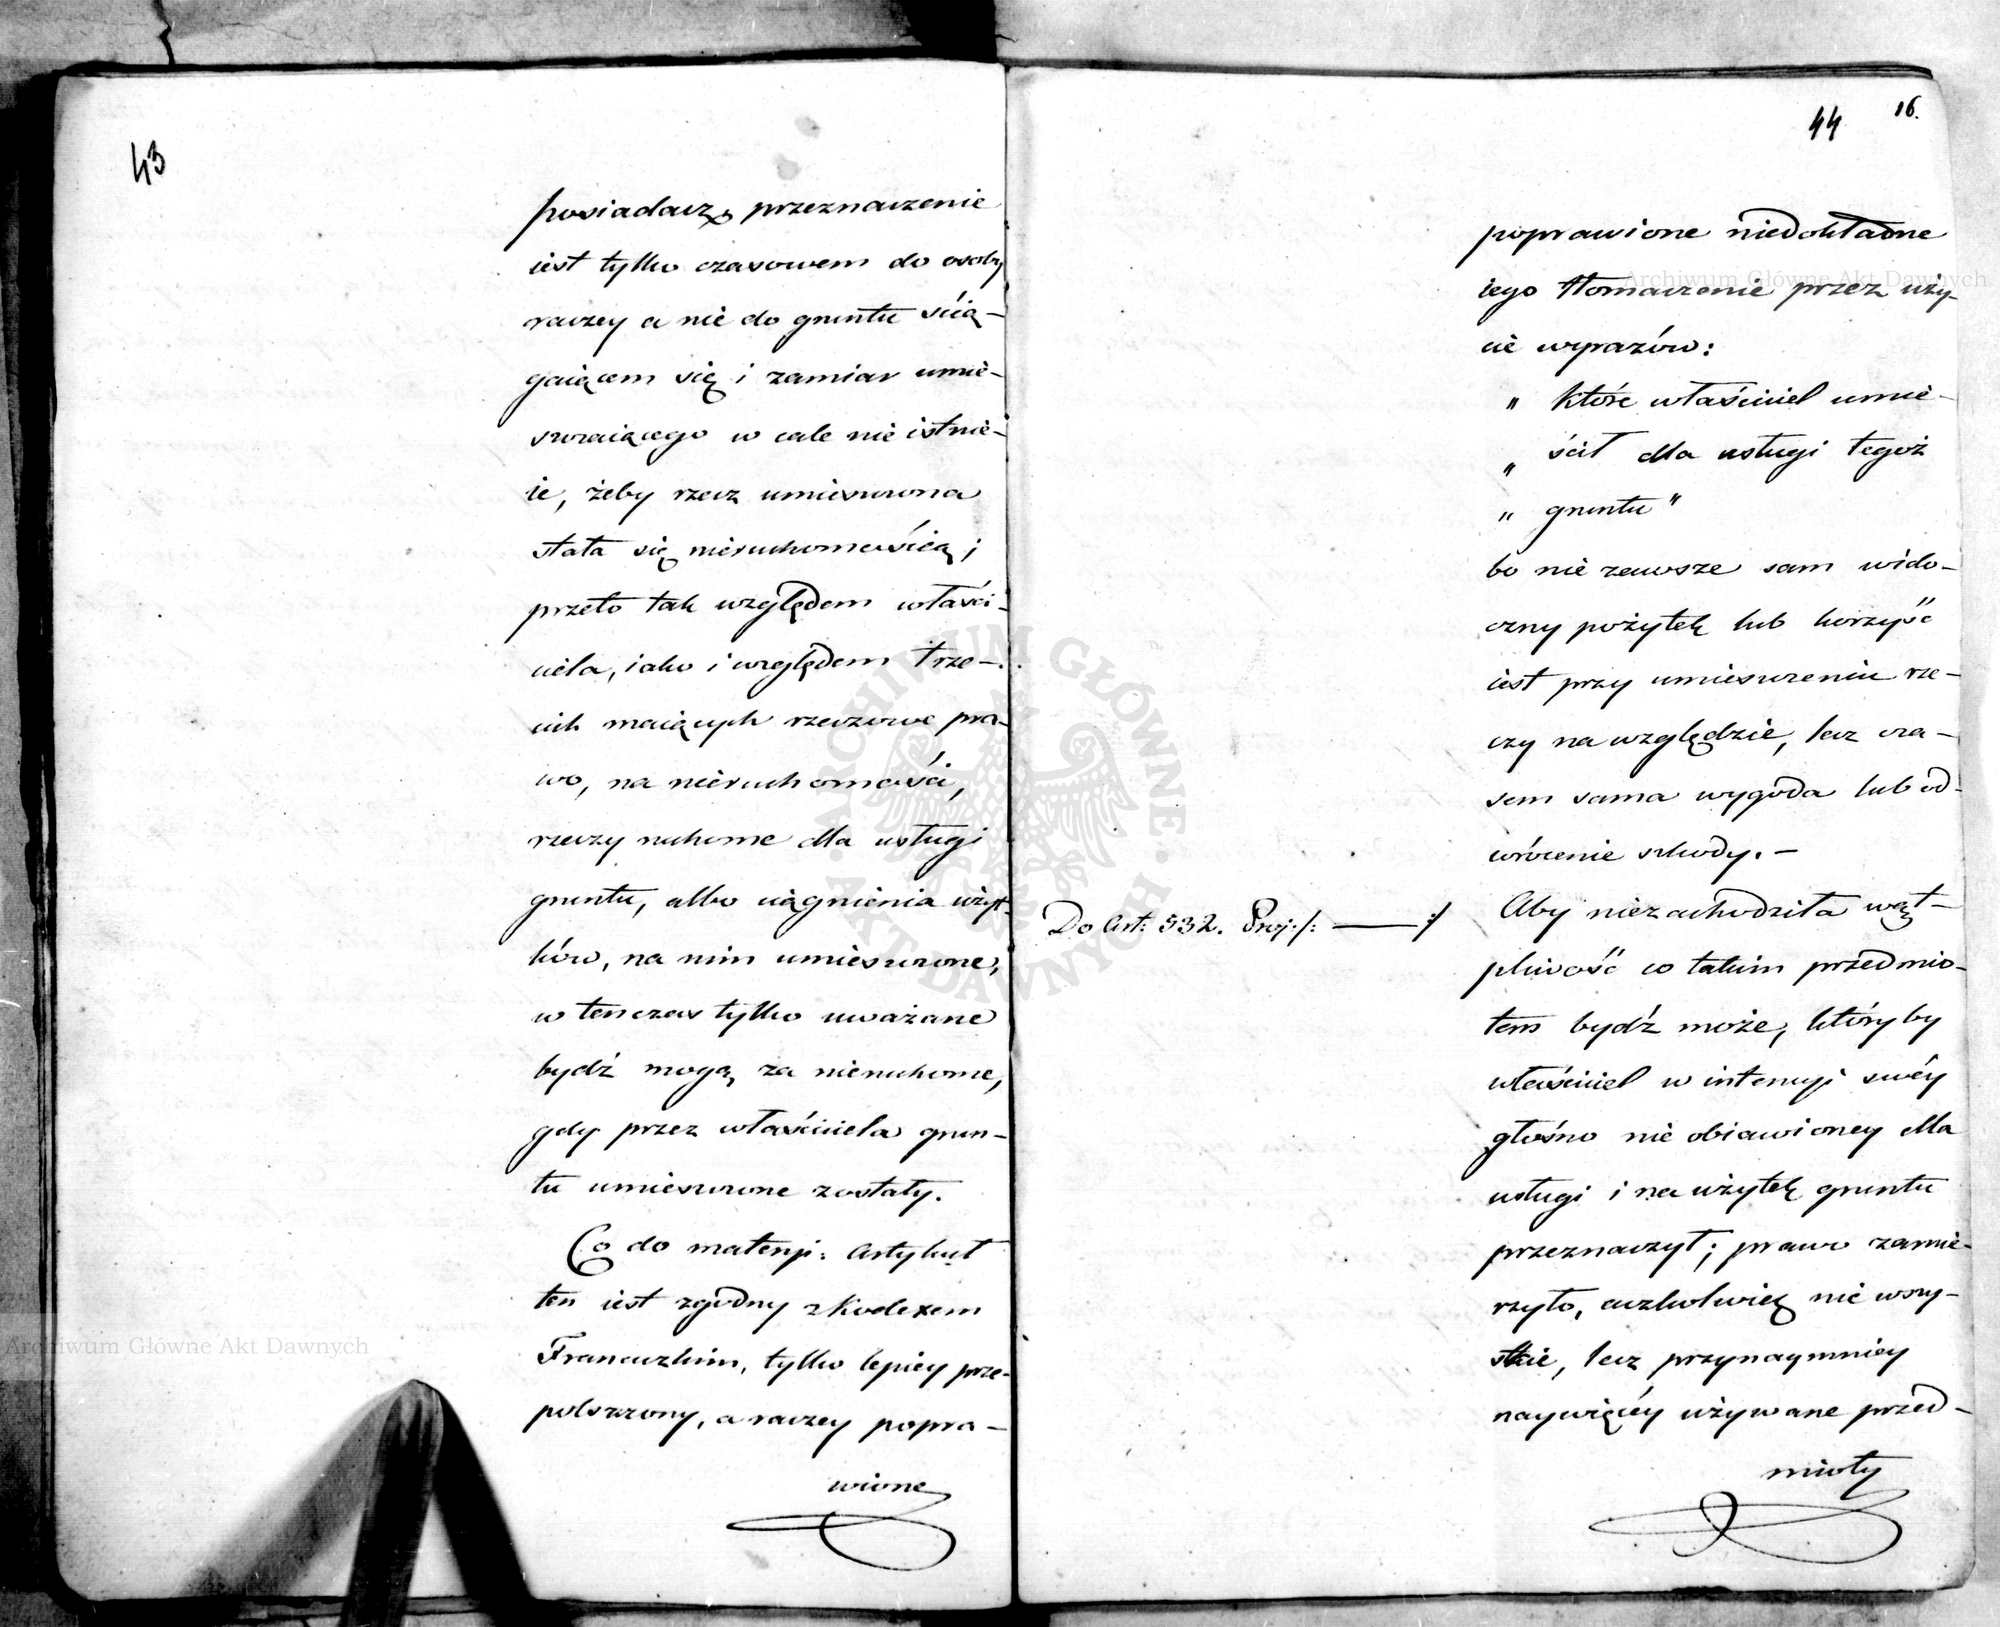 43
posiadacza przeznaczenie
iest tylko czasowem do osoby
raczey a nie do gruntu ścią-
gaiącem się i zamiar umie-
szczaiącego w cale nie istnie-
ie, żeby rzecz umieszczona
stała się nieruchomością;
przeto tak względem właści-
ciela, iako i względem trze-
cich maiących rzeczowe pra-
wo, na nieruchomości,
rzeczy ruchome dla usługi
gruntu, albo ciągnienia użyt-
ków, na nim umieszczone,
w tenczas tylko uważane
bydź mogą za nieruchome,
gdy przez właściciela grun-
tu umieszczone zostały.
Co do materyi: Artykuł
ten iest zgodny z Kodexem
Francuzkim, tylko lepiey prze-
polszczony, a raczey popra-
wione
44
16.
poprawione niedokładne
iego tłomaczenie przez uży-
cie wyrazów:
" które właściciel umie-
" ścił dla usługi tegoż
" gruntu"
bo nie zawsze sam wido-
czny pożytek lub korzyść
iest przy umieszczeniu rze-
czy na względzie, lecz cza-
sem sama wygoda lub od-
wrócenie szkody. —
Do Art: 532. Proj:/: — :/
Aby niezachodziła wąt-
pliwość co takim przedmio-
tem bydź może, któryby
właściciel w intencyi swéy
głośno nie obiawioney dla
usługi i na użytek gruntu
przeznaczył; prawo zamie-
rzyło, aczkolwiek nie wszy-
stkie, lecz przynaymniey
naywięcéy używane przed-
mioty
Archiwum Główne Akt Dawnych
Archiwum Główne Akt Dawnych
ARCHIWUM GŁÓWNE · AKT DAWNYCH ·